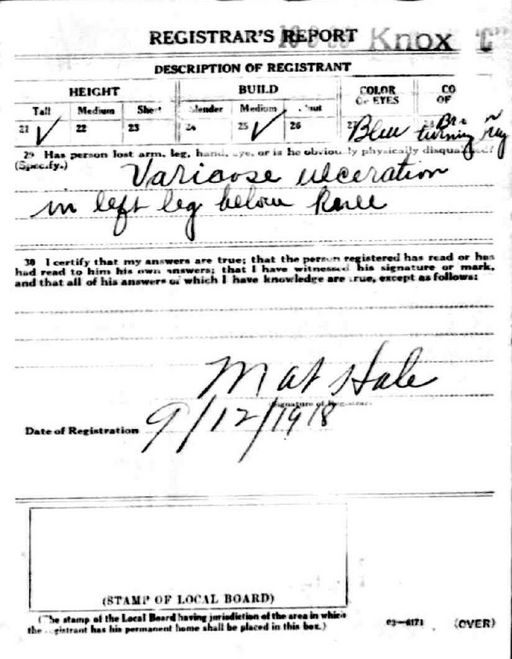 REGISTRAR'S REPORT Knox "C"
DESCRIPTION OF REGISTRANT
HEIGHT BUILD COLOR OF EYES CO OF
Tall Medium Short Slender Medium Stout
21 ✓ 22 23 24 25 ✓ 26 27 Blue turning
29 Has person lost arm, leg, hand, eye, or is he obviously physically disqualified?
(Specify.) Varicose ulceration
in left leg below Knee
30 I certify that my answers are true; that the person registered has read or has
had read to him his own answers; that I have witnessed his signature or mark,
and that all of his answers of which I have knowledge are true, except as follows:
Mat Hale
(Signature of Registrar)
Date of Registration 9/12/1918
(STAMP OF LOCAL BOARD)
(The stamp of the Local Board having jurisdiction of the area in which
the registrant has his permanent home shall be placed in this box.)
03—6171 (OVER)